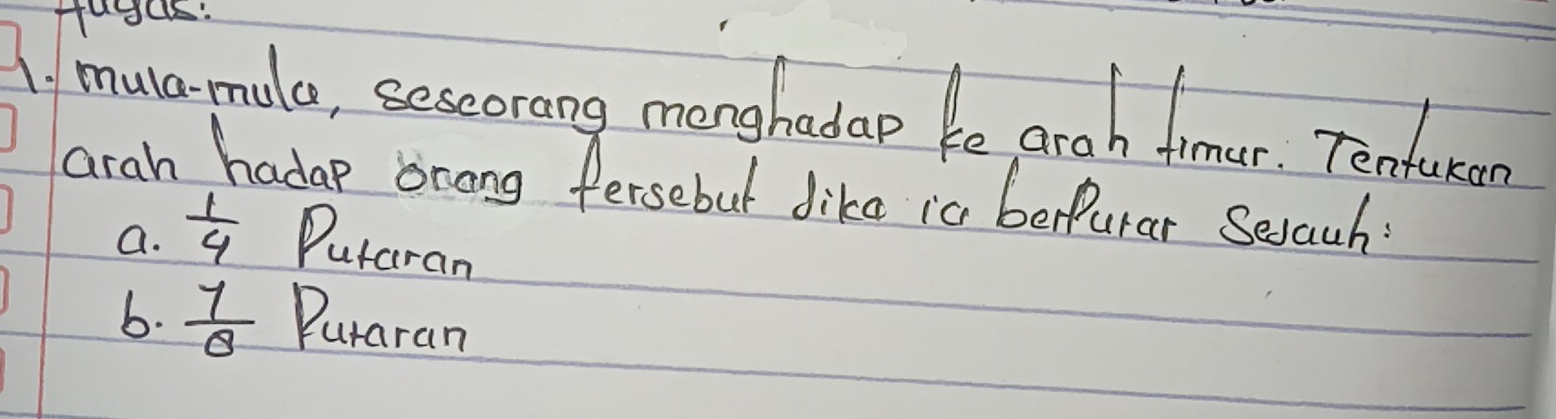 Tugas:
1. mula-mula, seseorang menghadap ke arah timur. Tentukan
arah hadap orang tersebut Jika ia berPutar Sejauh:
a. 1/4 Putaran
b. 7/8 Putaran